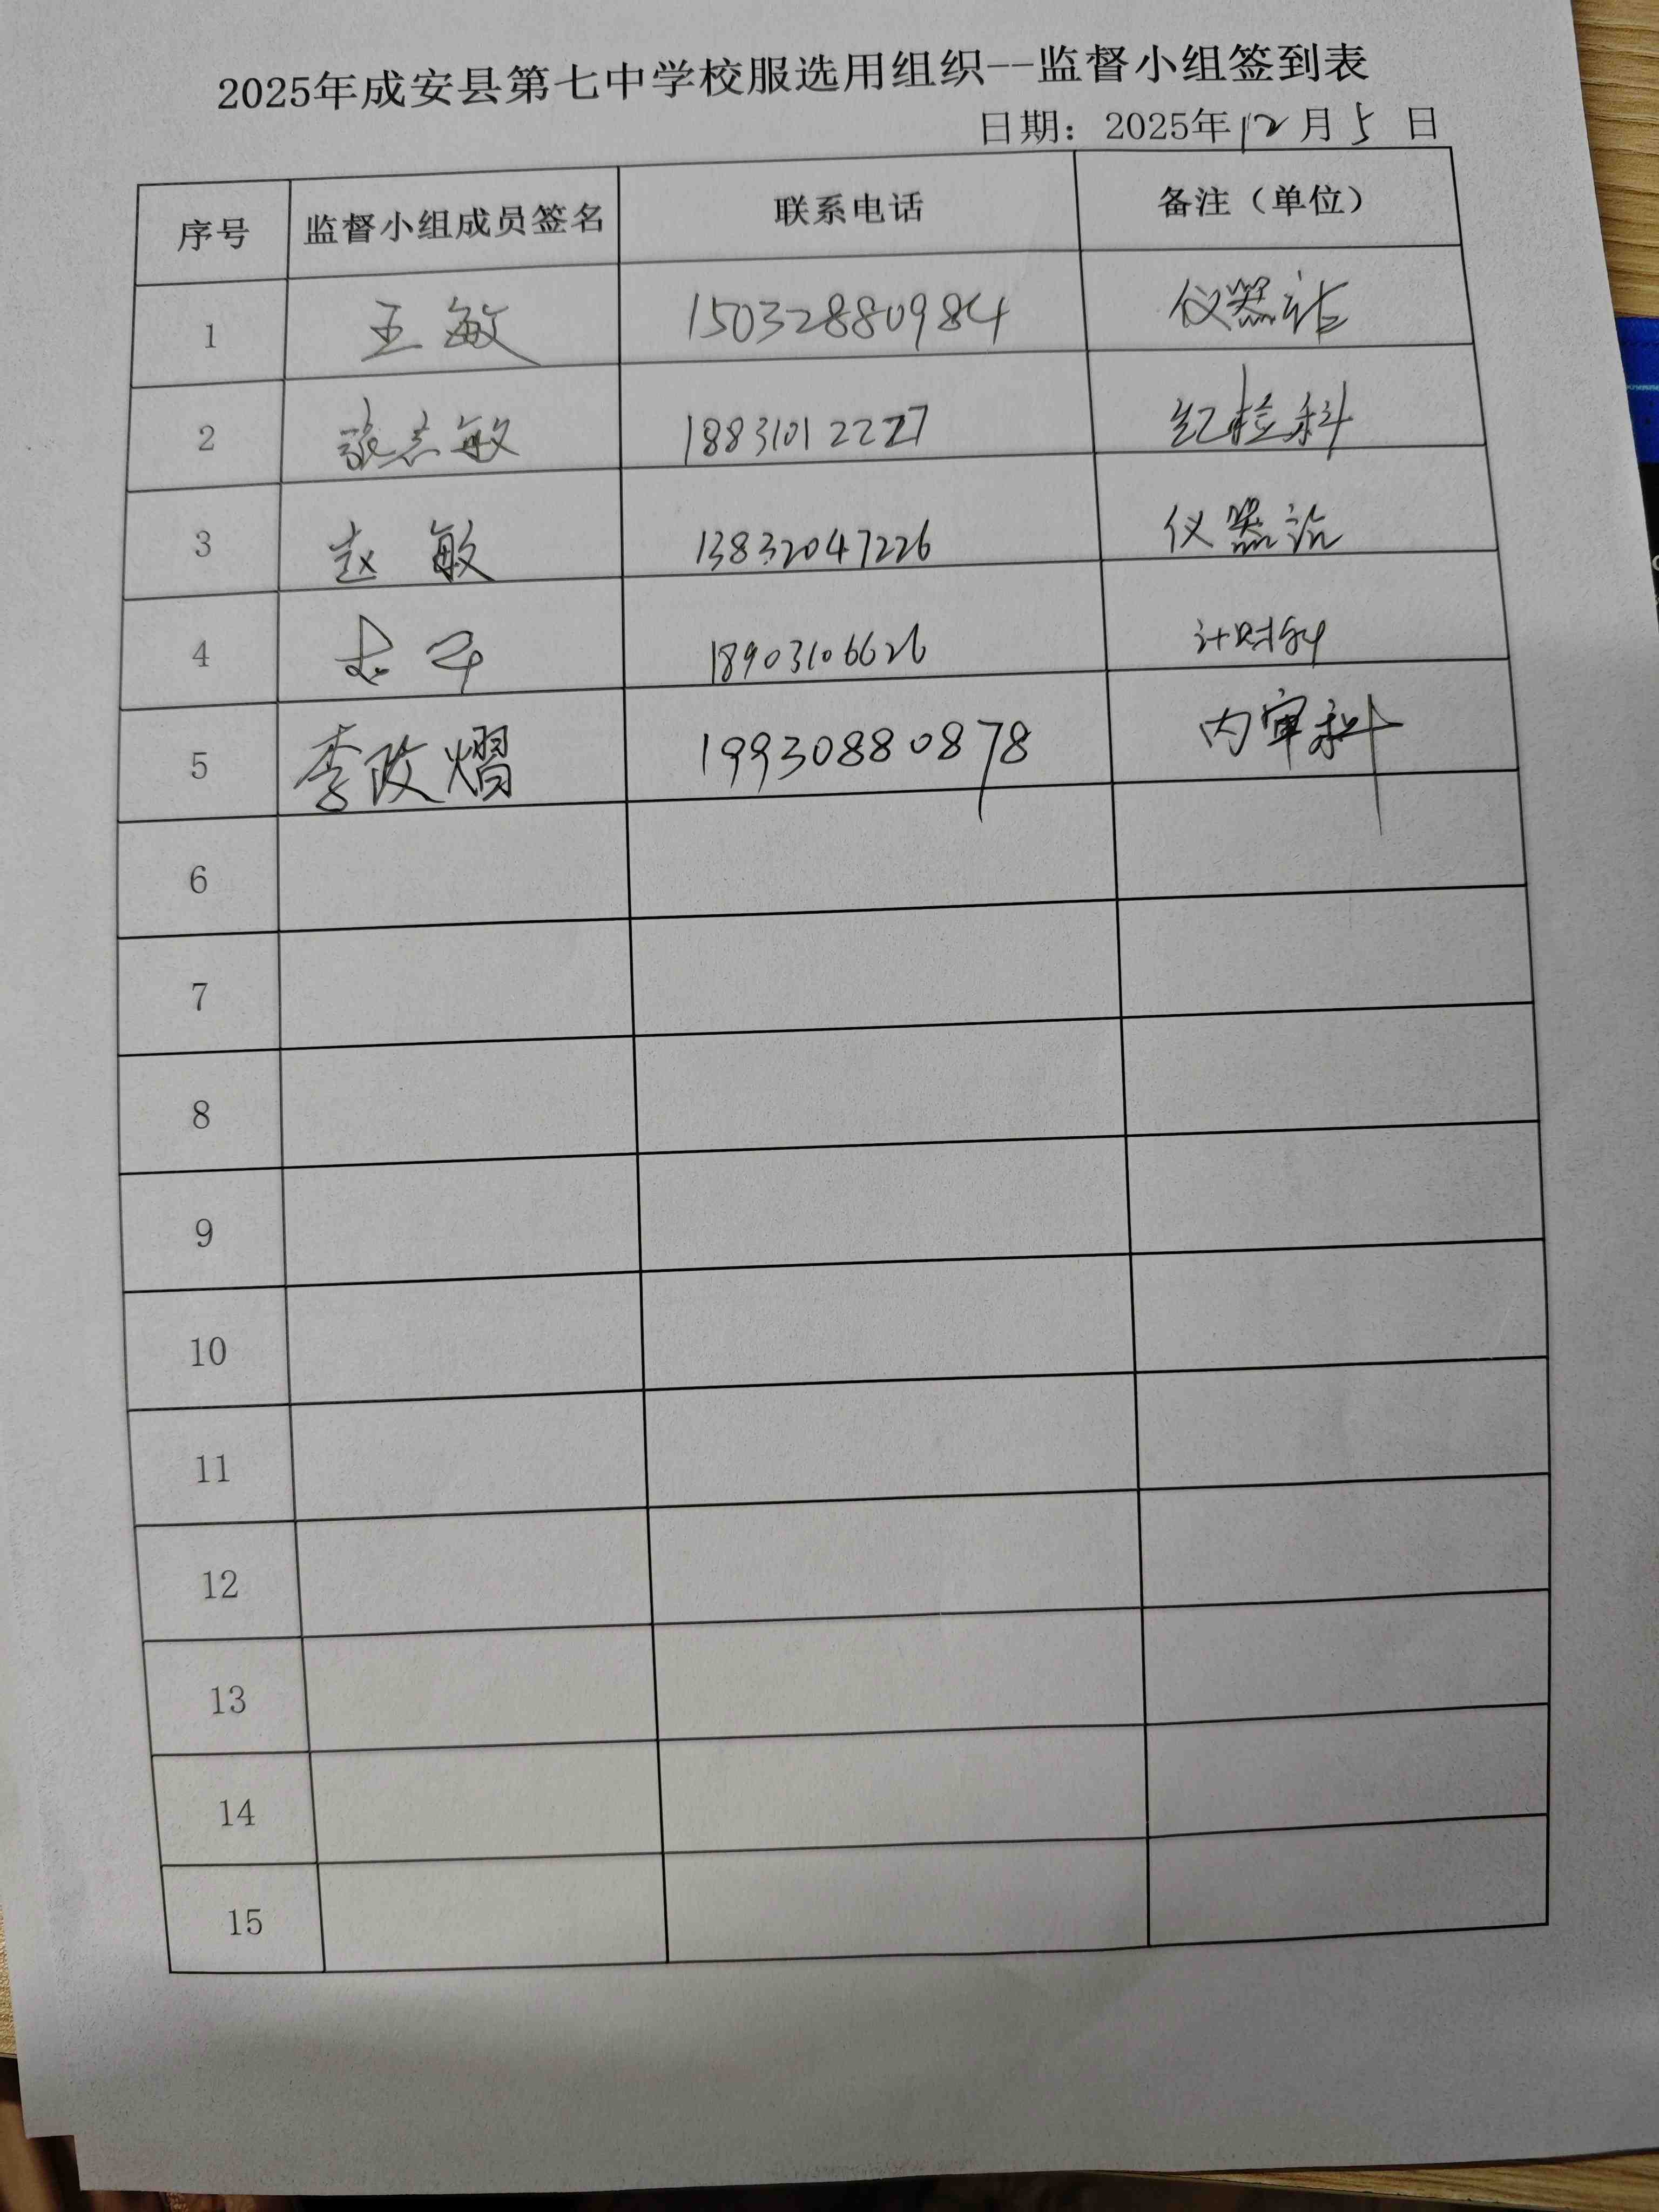 2025年成安县第七中学校服选用组织--监督小组签到表
日期：2025年12月5日
序号 监督小组成员签名 联系电话 备注（单位）
1 王敏 15032880984 仪器站
2 张志敏 18831012227 纪检科
3 赵敏 13832047226 仪器站
4 18903106626 计财科
5 李政熠 19930880878 内审科
6
7
8
9
10
11
12
13
14
15